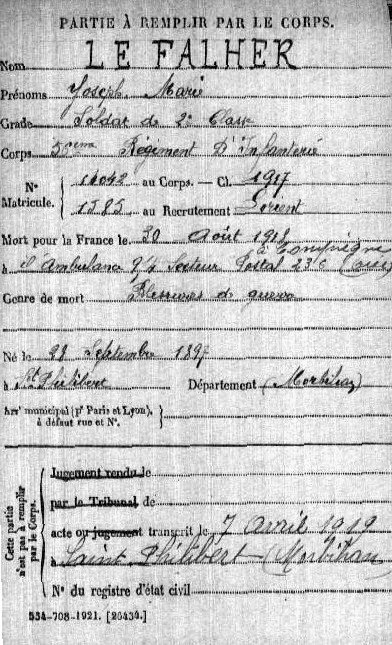 PARTIE À REMPLIR PAR LE CORPS.
Nom LE FALHER
Prénoms Joseph Marie
Grade Soldat de 2e Classe
Corps Régiment D'Infanterie
N° Matricule. au Corps. — Cl. 1917
1585 au Recrutement Lorient
Mort pour la France le 30 Août 1918
à Compiègne (Oise)
à l'Ambulance 9/4 Secteur Postal
Genre de mort Blessures de guerre
Né le 28 Septembre 1897
à St Philibert Département (Morbihan)
Arrt municipal (pr Paris et Lyon), à défaut rue et N°.
Cette partie n'est pas à remplir par le Corps.
Jugement rendu le
par le Tribunal de
acte ou jugement transcrit le 7 Avril 1919
à Saint Philibert (Morbihan)
N° du registre d'état civil
534-708-1921. [26434.]